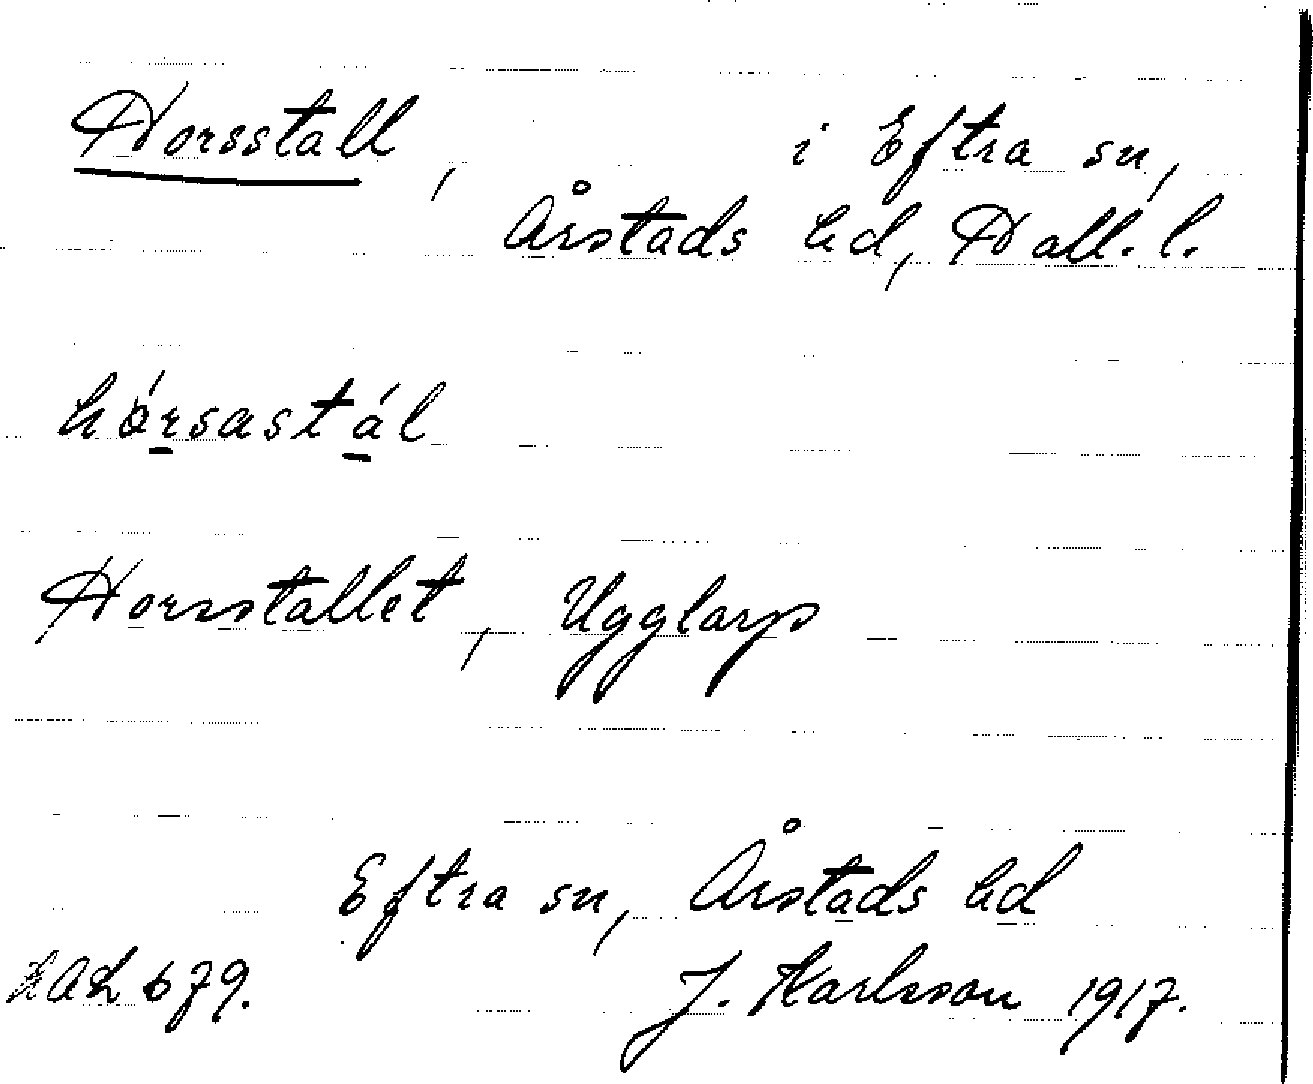 Horsstall, i Eftra sn,
Årstads hd, Hall. l.
hórsastál
Horsstallet, Ugglarp
Eftra sn, Årstads hd
679. J. Karlsson 1917.